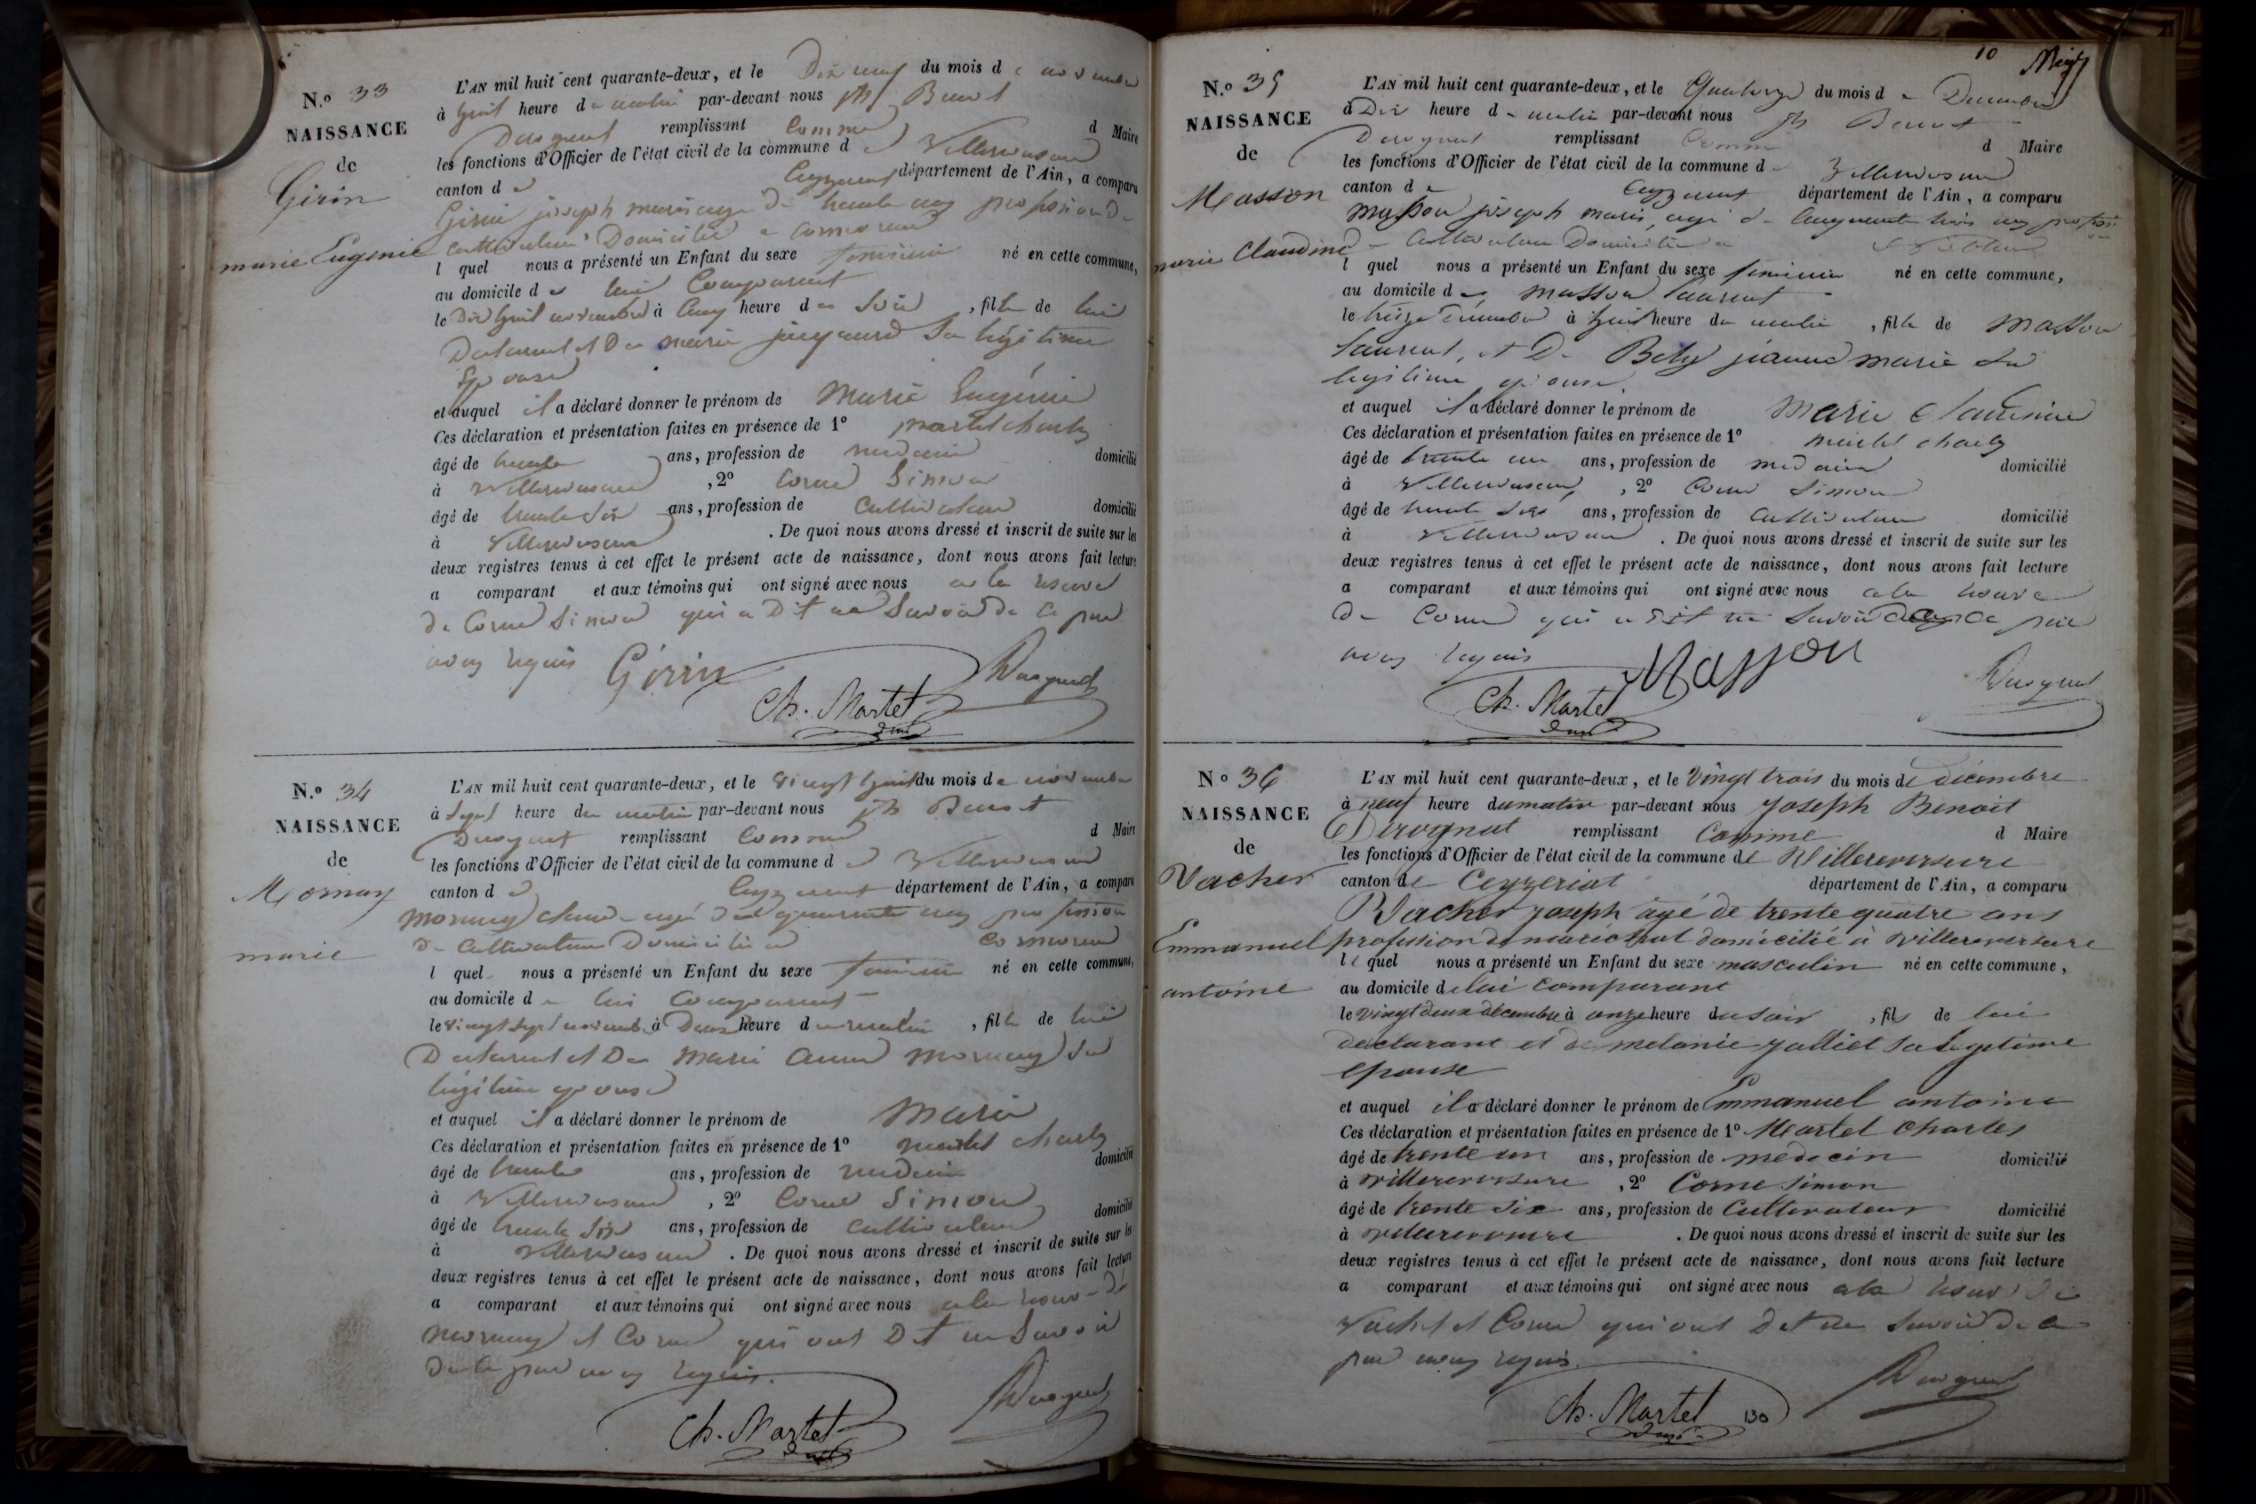 N.º 33
NAISSANCE
de
Girin
marie Eugenie
L'AN mil huit cent quarante-deux, et le Dix neuf du mois de novembre
à huit heure du matin par-devant nous jph Benoit
Derognat remplissant comme d Maire
les fonctions d'Officier de l'état civil de la commune de Villereversure
canton de Ceyzeriat département de l'Ain, a comparu
Girin joseph marie agé de trente ans profession de
cultivateur Domicilié a
l quel nous a présenté un Enfant du sexe feminin né en cette commune,
au domicile de lui Comparant
le Dix huit novembre à cinq heure du Soir, fille de lui
Declarant et De marie Sa légitime
Epouse
et auquel il a déclaré donner le prénom de Marie Eugénie
Ces déclaration et présentation faites en présence de 1º martel charles
âgé de trente ans, profession de medecin domicilié
à Villereversure, 2º Corne Simon
âgé de trente Six ans, profession de Cultivateur domicilié
à Villereversure. De quoi nous avons dressé et inscrit de suite sur les
deux registres tenus à cet effet le présent acte de naissance, dont nous avons fait lecture
a comparant et aux témoins qui ont signé avec nous a la reserve
de Corne Simon qui a Dit ne Savoir De ce faire
requis Girin
Ch. Martel
Derognat
N.º 34
NAISSANCE
de
Mornay
marie
L'AN mil huit cent quarante-deux, et le vingt huit du mois de novembre
à Sept heure du matin par-devant nous jph Benoit
Derognat remplissant Comme d Maire
les fonctions d'Officier de l'état civil de la commune de Villereversure
canton de Ceyzeriat département de l'Ain, a comparu
mornay claude agé de quarante ans profession
De Cultivateur Domicilié a
l quel nous a présenté un Enfant du sexe feminin né en cette commune,
au domicile de lui Comparant
le vingt Sept novembre à Deux heure du matin, fille de lui
Declarant et De Marie Anne Mornay Sa
légitime epouse
et auquel il a déclaré donner le prénom de Marie
Ces déclaration et présentation faites en présence de 1º martel charles
âgé de trente ans, profession de medecin domicilié
à Villereversure, 2º Corne Simon
âgé de trente Six ans, profession de cultivateur domicilié
à Villereversure. De quoi nous avons dressé et inscrit de suite sur les
deux registres tenus à cet effet le présent acte de naissance, dont nous avons fait lecture
a comparant et aux témoins qui ont signé avec nous a la reserve de
mornay et Corne qui ont Dit ne Savoir
De ce faire requis.
Ch. Martel
Derognat
10
N.º 35
NAISSANCE
de
Masson
marie Claudine
L'AN mil huit cent quarante-deux, et le Quatorze du mois de Decembre
à Dix heure du matin par-devant nous jph Benoit
Derognat remplissant Comme d Maire
les fonctions d'Officier de l'état civil de la commune de Villereversure
canton de Ceyzeriat département de l'Ain, a comparu
Masson joseph marie, agé de cinquante trois ans profession
de Cultivateur Domicilié a
l quel nous a présenté un Enfant du sexe feminin né en cette commune,
au domicile de masson laurent
le treize Decembre à huit heure du matin, fille de Masson
laurent, et De Bely jeanne marie Sa
legitime epouse.
et auquel il a déclaré donner le prénom de Marie Claudine
Ces déclaration et présentation faites en présence de 1º martel charles
âgé de trente un ans, profession de medecin domicilié
à Villereversure, 2º Corne Simon
âgé de trente Six ans, profession de Cultivateur domicilié
à Villereversure. De quoi nous avons dressé et inscrit de suite sur les
deux registres tenus à cet effet le présent acte de naissance, dont nous avons fait lecture
a comparant et aux témoins qui ont signé avec nous a la reserve
De Corne qui a Dit ne Savoir De ce faire
requis Masson
Ch. Martel
Derognat
Nº 36
NAISSANCE
de
Vacher
Emmanuel
antoine
L'AN mil huit cent quarante-deux, et le Vingt trois du mois de décembre
à neuf heure du matin par-devant nous Joseph Benoit
Derognat remplissant Comme d Maire
les fonctions d'Officier de l'état civil de la commune de Villereversure
canton de Ceyzeriat département de l'Ain, a comparu
Vacher joseph agé de trente quatre ans
profession de maréchal domicilié à villereversure
le quel nous a présenté un Enfant du sexe masculin né en cette commune,
au domicile de lui comparant
le vingt deux décembre à onze heure du soir, fils de lui
declarant et de melanie Sa legitime
epouse
et auquel il a déclaré donner le prénom de Emmanuel antoine
Ces déclaration et présentation faites en présence de 1º Martel Charles
âgé de trente un ans, profession de médecin domicilié
à villereversure, 2º Corne Simon
âgé de trente six ans, profession de Cultivateur domicilié
à villereversure. De quoi nous avons dressé et inscrit de suite sur les
deux registres tenus à cet effet le présent acte de naissance, dont nous avons fait lecture
a comparant et aux témoins qui ont signé avec nous a la reserve De
Vacher et Corne qui ont Dit ne Savoir De ce
faire requis.
Ch. Martel
130
Derognat